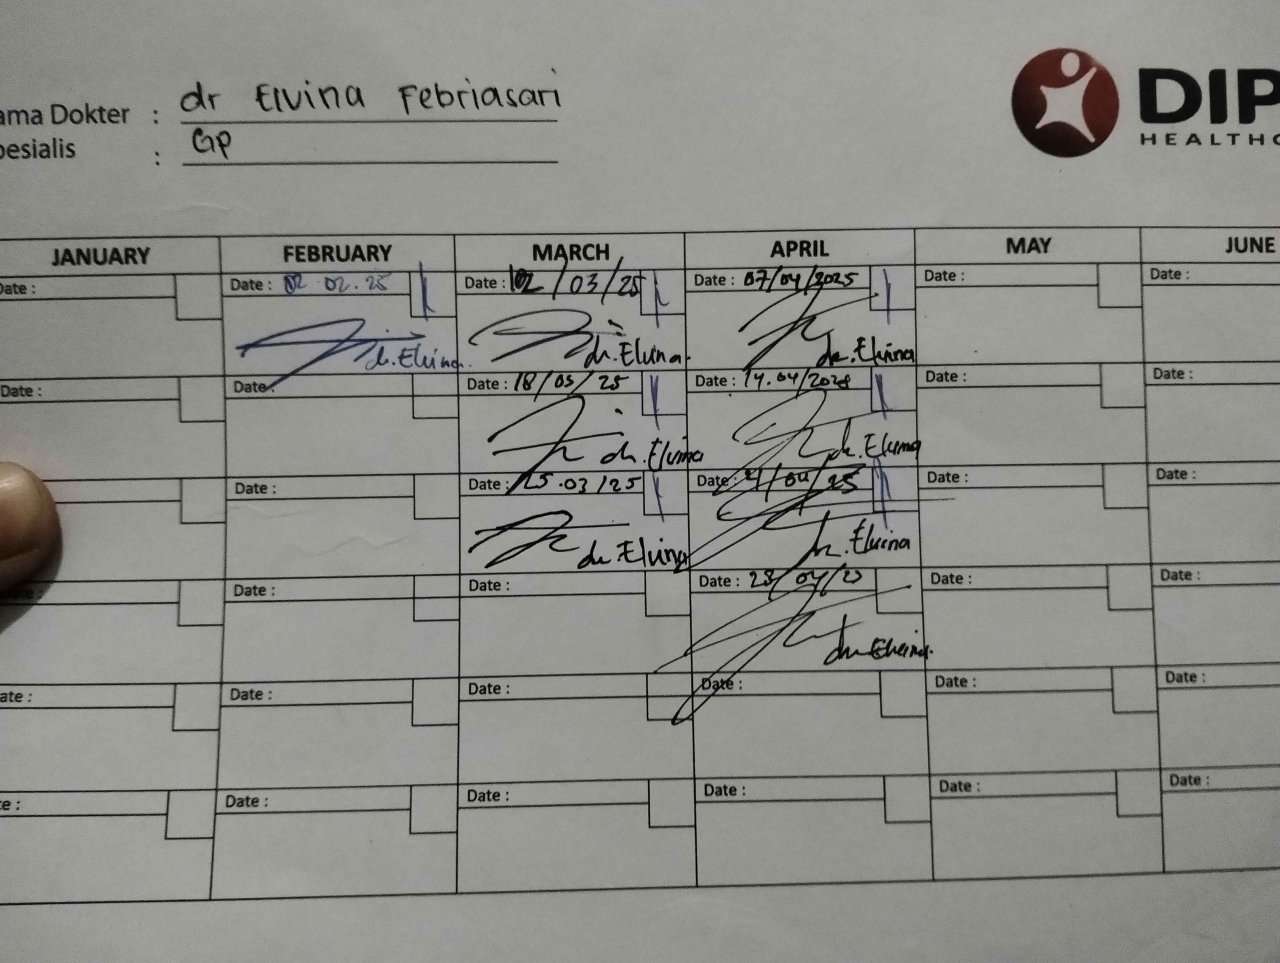 ama Dokter : dr Elvina Febriasari
pesialis : GP
DIP
HEALTHC
JANUARY FEBRUARY MARCH APRIL MAY JUNE
Date : Date : 02.02.25 Date : 02/03/25 Date : 07/04/2025 Date : Date :
dr.Elvina. dr.Elvina. dr.Elvina
Date : Date Date : 18/03/25 Date : 14.04/2025 Date : Date :
dr.Elvina dr.Elvina
Date : Date : 25.03/25 Date : 21/04/25 Date : Date :
dr.Elvina dr.Elvina
Date : Date : Date : 28/04/25 Date : Date :
dr Elvina.
ate : Date : Date : Date : Date : Date :
e : Date : Date : Date : Date : Date :